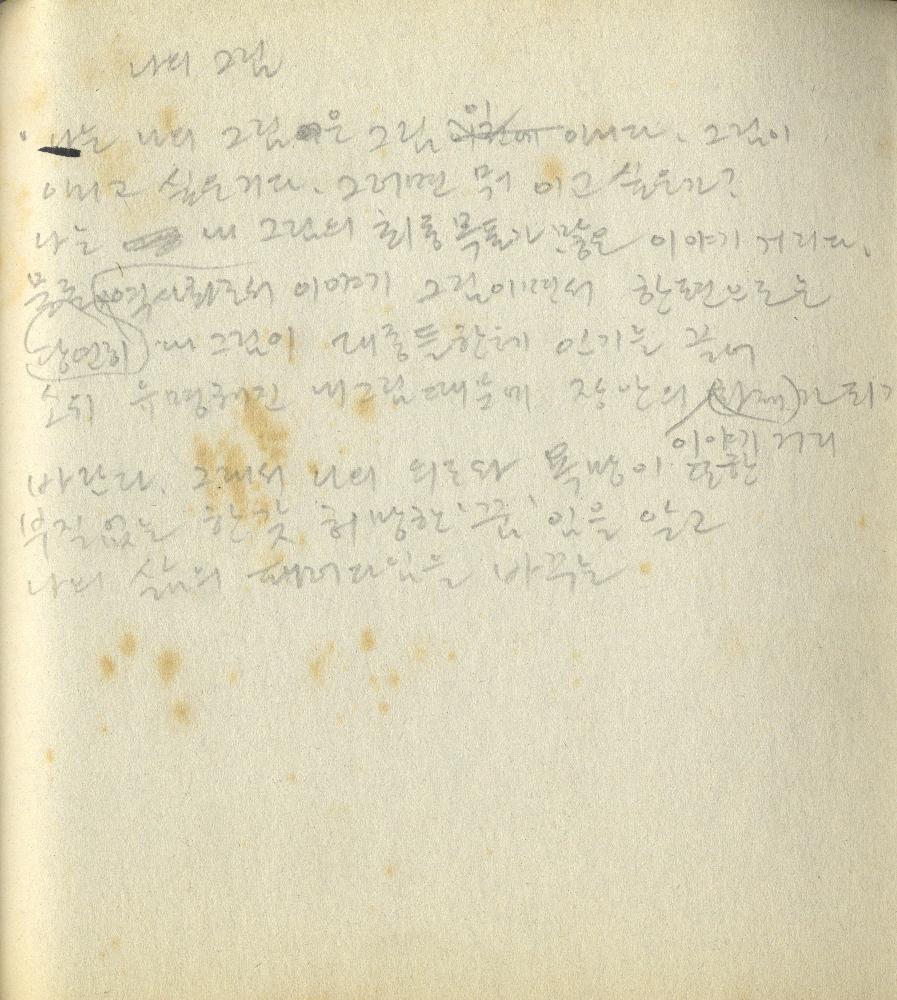 나의 그림
나의 그림은 그림 아니다. 그림이
아니고 싶은거다. 그러면 뭐 이고 싶은가?
나는 내 그림의 최종목표가 많은 이야기 거리다.
물론 역사화로서 이야기 그림이면서 한편으로는
당연히 내 그림이 대중들한테 인기를 끌어
소위 유명해진 내그림때문에 장안의 화제가 되기
이야기 거리
바란다. 그래서 나의 의도와 욕망이 또한
부질없는 한낱 허망한 '꿈' 임을 알고
나의 삶의 패러다임을 바꾸는